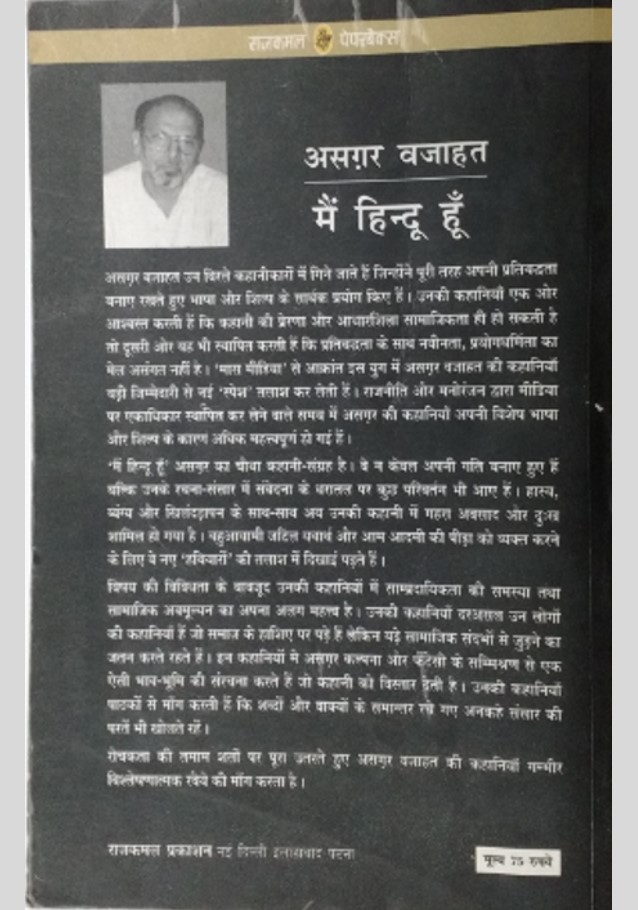 राजकमल पेपरबैक्स
असग़र वजाहत
मैं हिन्दू हूँ
असग़र वजाहत उन विरले कहानीकारों में गिने जाते हैं जिन्होंने पूरी तरह अपनी प्रतिबद्धता
बनाए रखते हुए भाषा और शिल्प के सार्थक प्रयोग किए हैं। उनकी कहानियाँ एक ओर
आश्वस्त करती हैं कि कहानी की प्रेरणा और आधारशिला सामाजिकता ही हो सकती है
तो दूसरी ओर यह भी स्थापित करती हैं कि प्रतिबद्धता के साथ नवीनता, प्रयोगधर्मिता का
मेल असंगत नहीं है। 'मास मीडिया' से आक्रांत इस युग में असग़र वजाहत की कहानियाँ
बड़ी जिम्मेदारी से नई 'स्पेस' तलाश कर लेती हैं। राजनीति और मनोरंजन द्वारा मीडिया
पर एकाधिकार स्थापित कर लेने वाले समय में असग़र की कहानियाँ अपनी विशेष भाषा
और शिल्प के कारण अधिक महत्त्वपूर्ण हो गई हैं।
'मैं हिन्दू हूँ' असग़र का चौथा कहानी-संग्रह है। वे न केवल अपनी गति बनाए हुए हैं
बल्कि उनके रचना-संसार में संवेदना के धरातल पर कुछ परिवर्तन भी आए हैं। हास्य,
व्यंग्य और खिलंदड़ापन के साथ-साथ अब उनकी कहानी में गहरा अवसाद और दुःख
शामिल हो गया है। बहुआयामी जटिल यथार्थ और आम आदमी की पीड़ा को व्यक्त करने
के लिए वे नए 'हथियारों' की तलाश में दिखाई पड़ते हैं।
विषय की विविधता के बावजूद उनकी कहानियों में साम्प्रदायिकता की समस्या तथा
सामाजिक अवमूल्यन का अपना अलग महत्त्व है। उनकी कहानियाँ दरअसल उन लोगों
की कहानियाँ हैं जो समाज के हाशिए पर पड़े हैं लेकिन बड़े सामाजिक संदर्भों से जुड़ने का
जतन करते रहते हैं। इन कहानियों में असग़र कल्पना और फैंटेसी के सम्मिश्रण से एक
ऐसी भाव-भूमि की संरचना करते हैं जो कहानी को विस्तार देती है। उनकी कहानियाँ
पाठकों से माँग करती हैं कि शब्दों और वाक्यों के समान्तर रचे गए अनकहे संसार की
परतें भी खोलते रहें।
रोचकता की तमाम शर्तों पर पूरा उतरते हुए असग़र वजाहत की कहानियाँ गम्भीर
विश्लेषणात्मक रवैये की माँग करता है।
राजकमल प्रकाशन नई दिल्ली इलाहाबाद पटना
मूल्य 75 रुपये